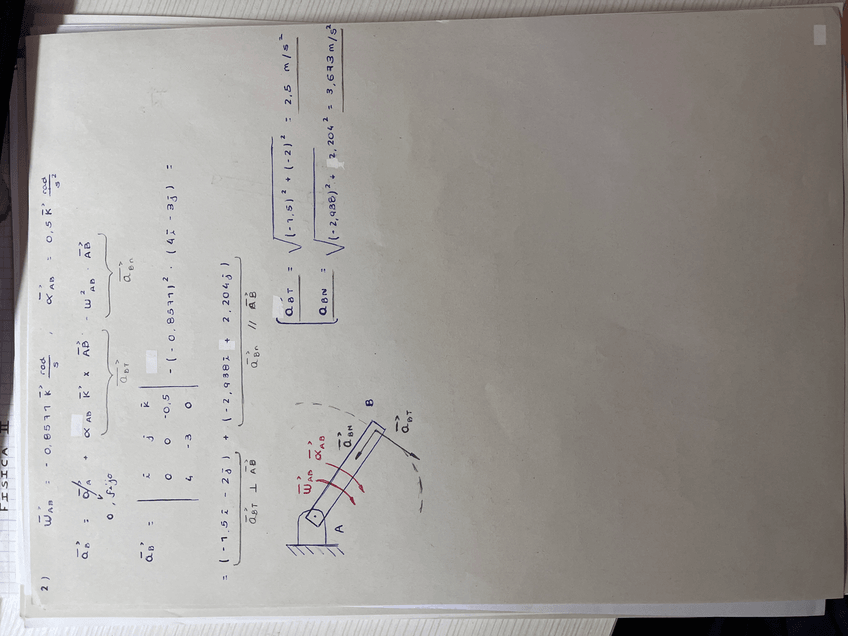 FISICA II
2) ω⃗AB = - 0,8571 K⃗ rad/s , α⃗AB = 0,5 K⃗ rad/s²
a⃗B = a⃗A + αAB K⃗ x AB⃗ - ω²AB · AB⃗
0, fijo a⃗BT a⃗Bn
a⃗B = | i j k | - (-0,8571)² · (4i - 3j) =
0 0 -0,5
4 -3 0
= (-1.5i - 2j) + (-2,938i + 2,204j)
a⃗BT ⊥ AB a⃗Bn // AB
aBT = √(-1.5)² + (-2)² = 2,5 m/s²
aBN = √(-2,938)² + 2,204² = 3,673 m/s²
ω⃗AB α⃗AB
A
B
a⃗BN
a⃗BT